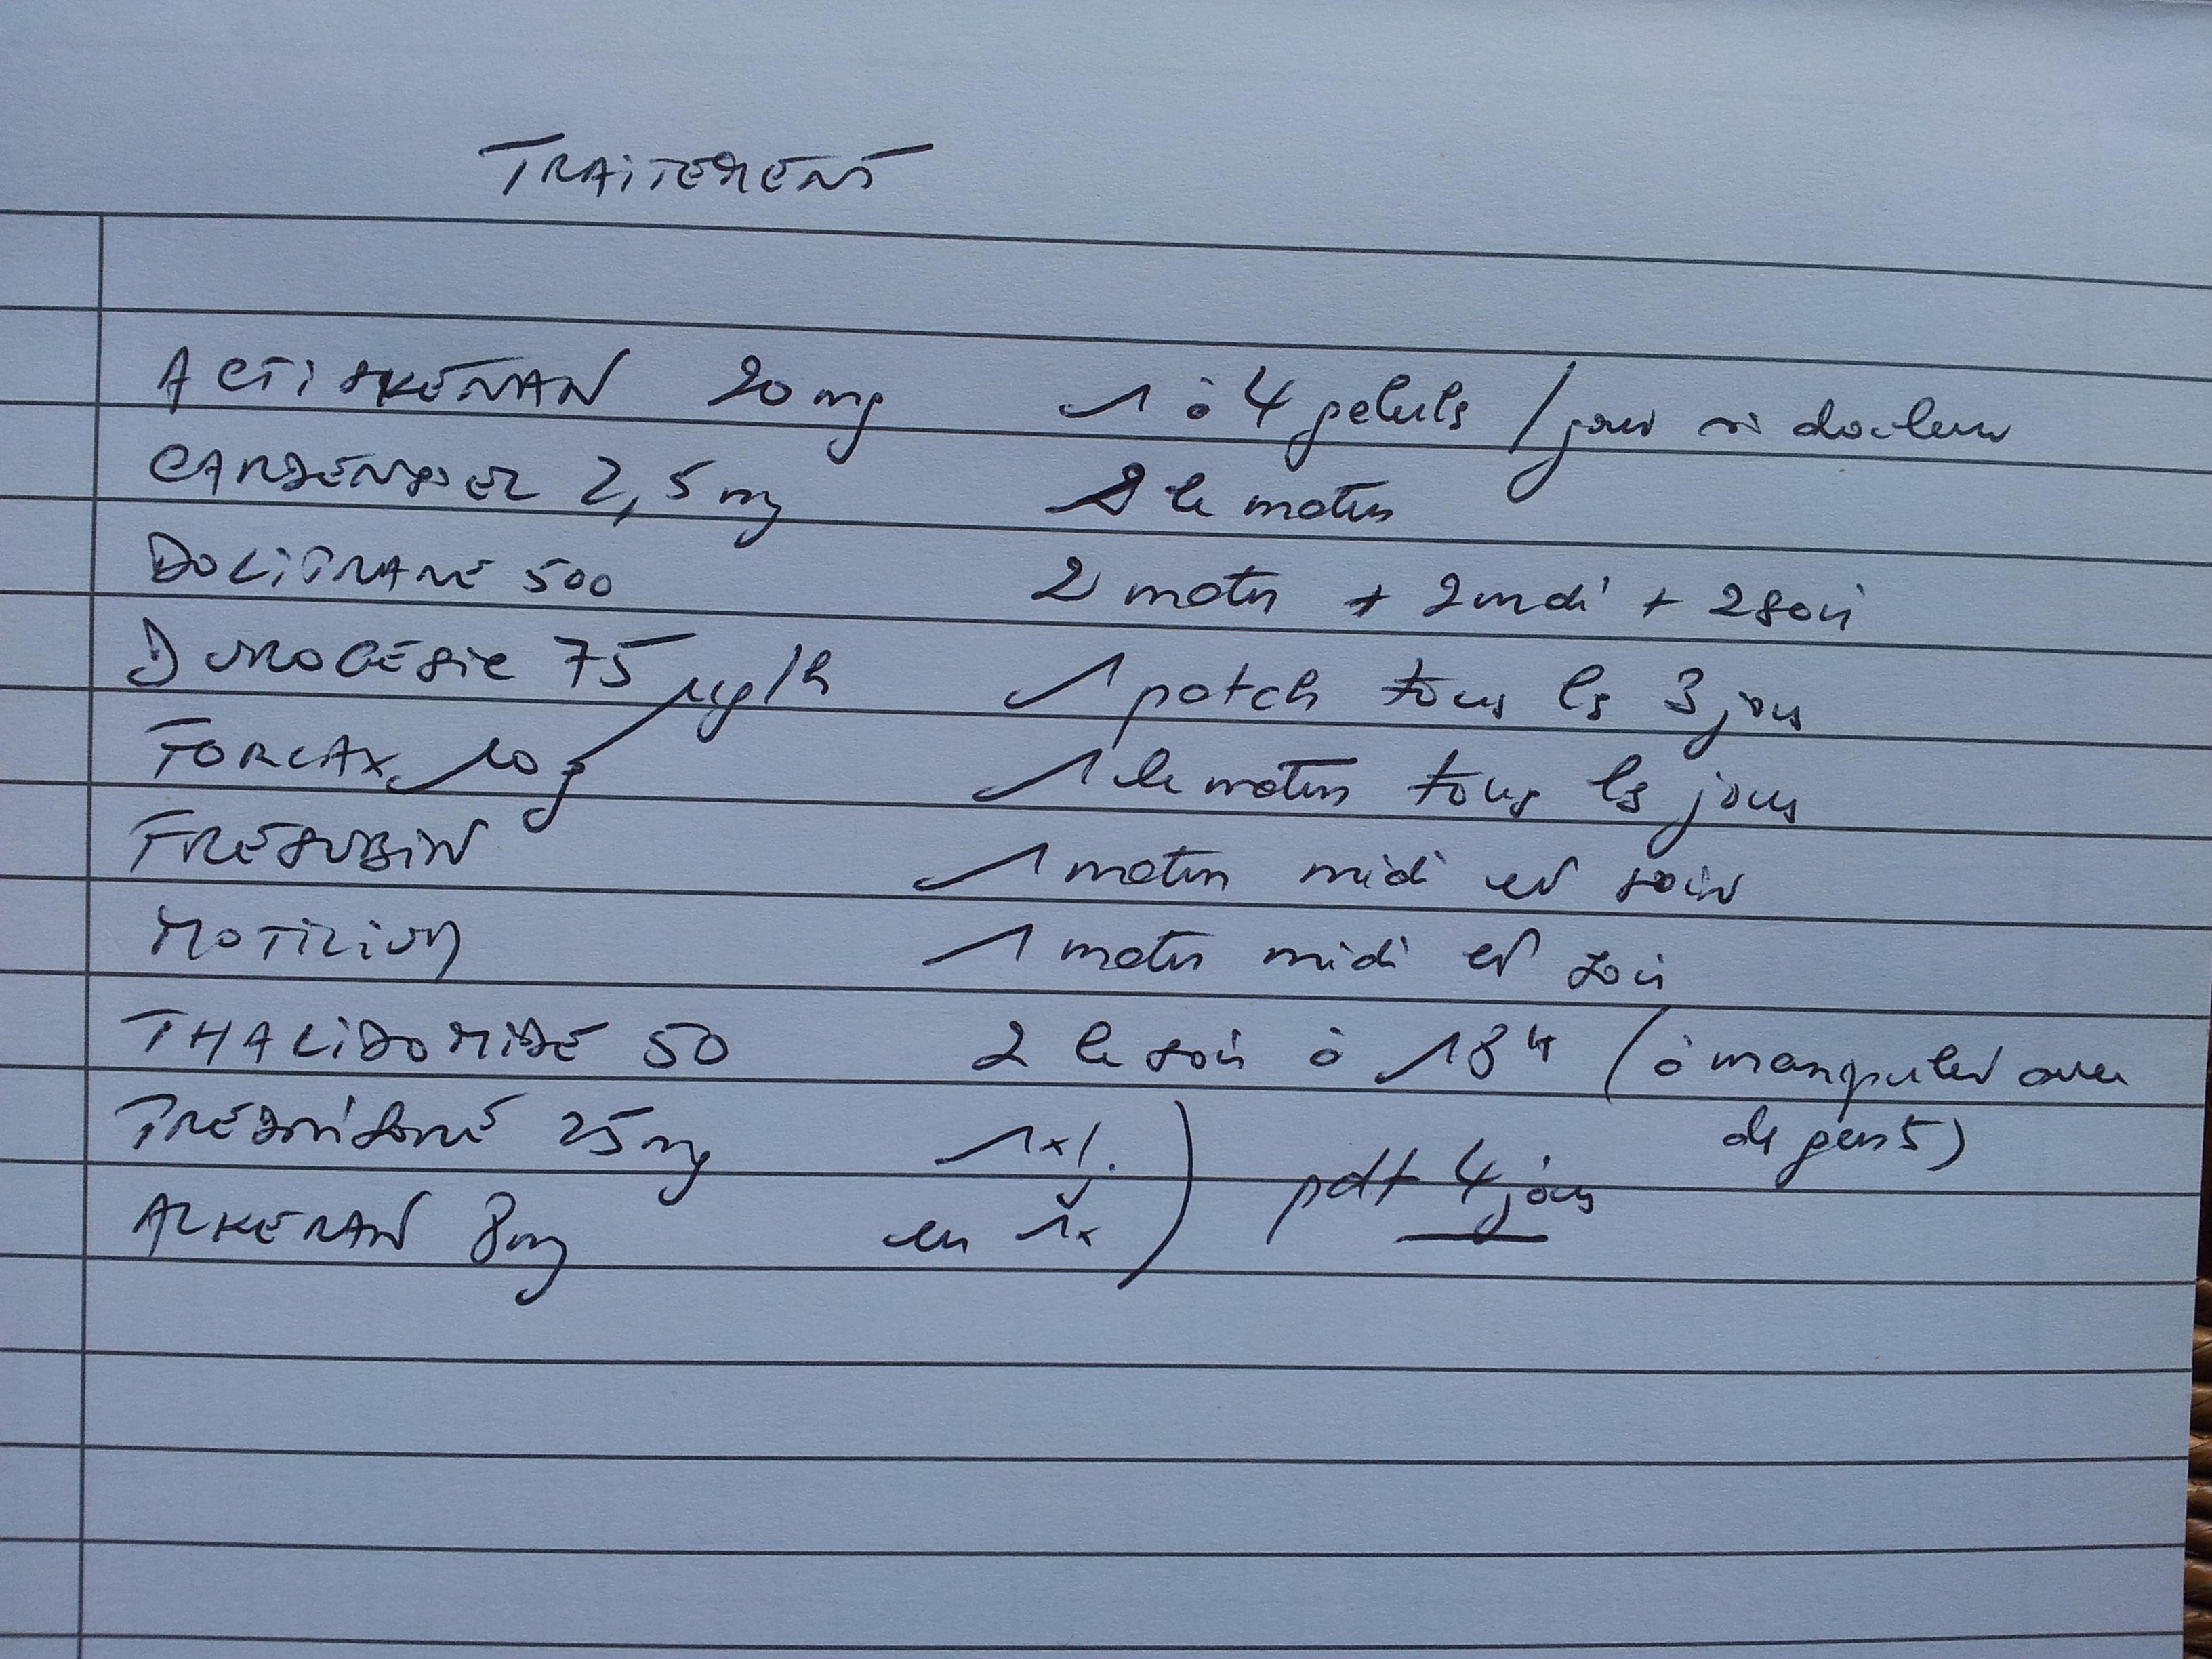 TRAITEMENT
ACTISKENAN 20 mg 1 à 4 gelules / jour si douleur
CARDENSIEL 2,5 mg 2 le matin
DOLIPRANE 500 2 matin + 2 midi + 2 soir
DUROGESIC 75 µg/h 1 patch tous les 3 jours
FORLAX 10 g 1 le matin tous les jours
FRESUBIN 1 matin midi et soir
MOTILIUM 1 matin midi et soir
THALIDOMIDE 50 2 le soir à 18H (à manipuler avec
des gants)
PREDNISONE 25 mg 1x/j
ALKERAN 8mg en 1x ) pdt 4 jours